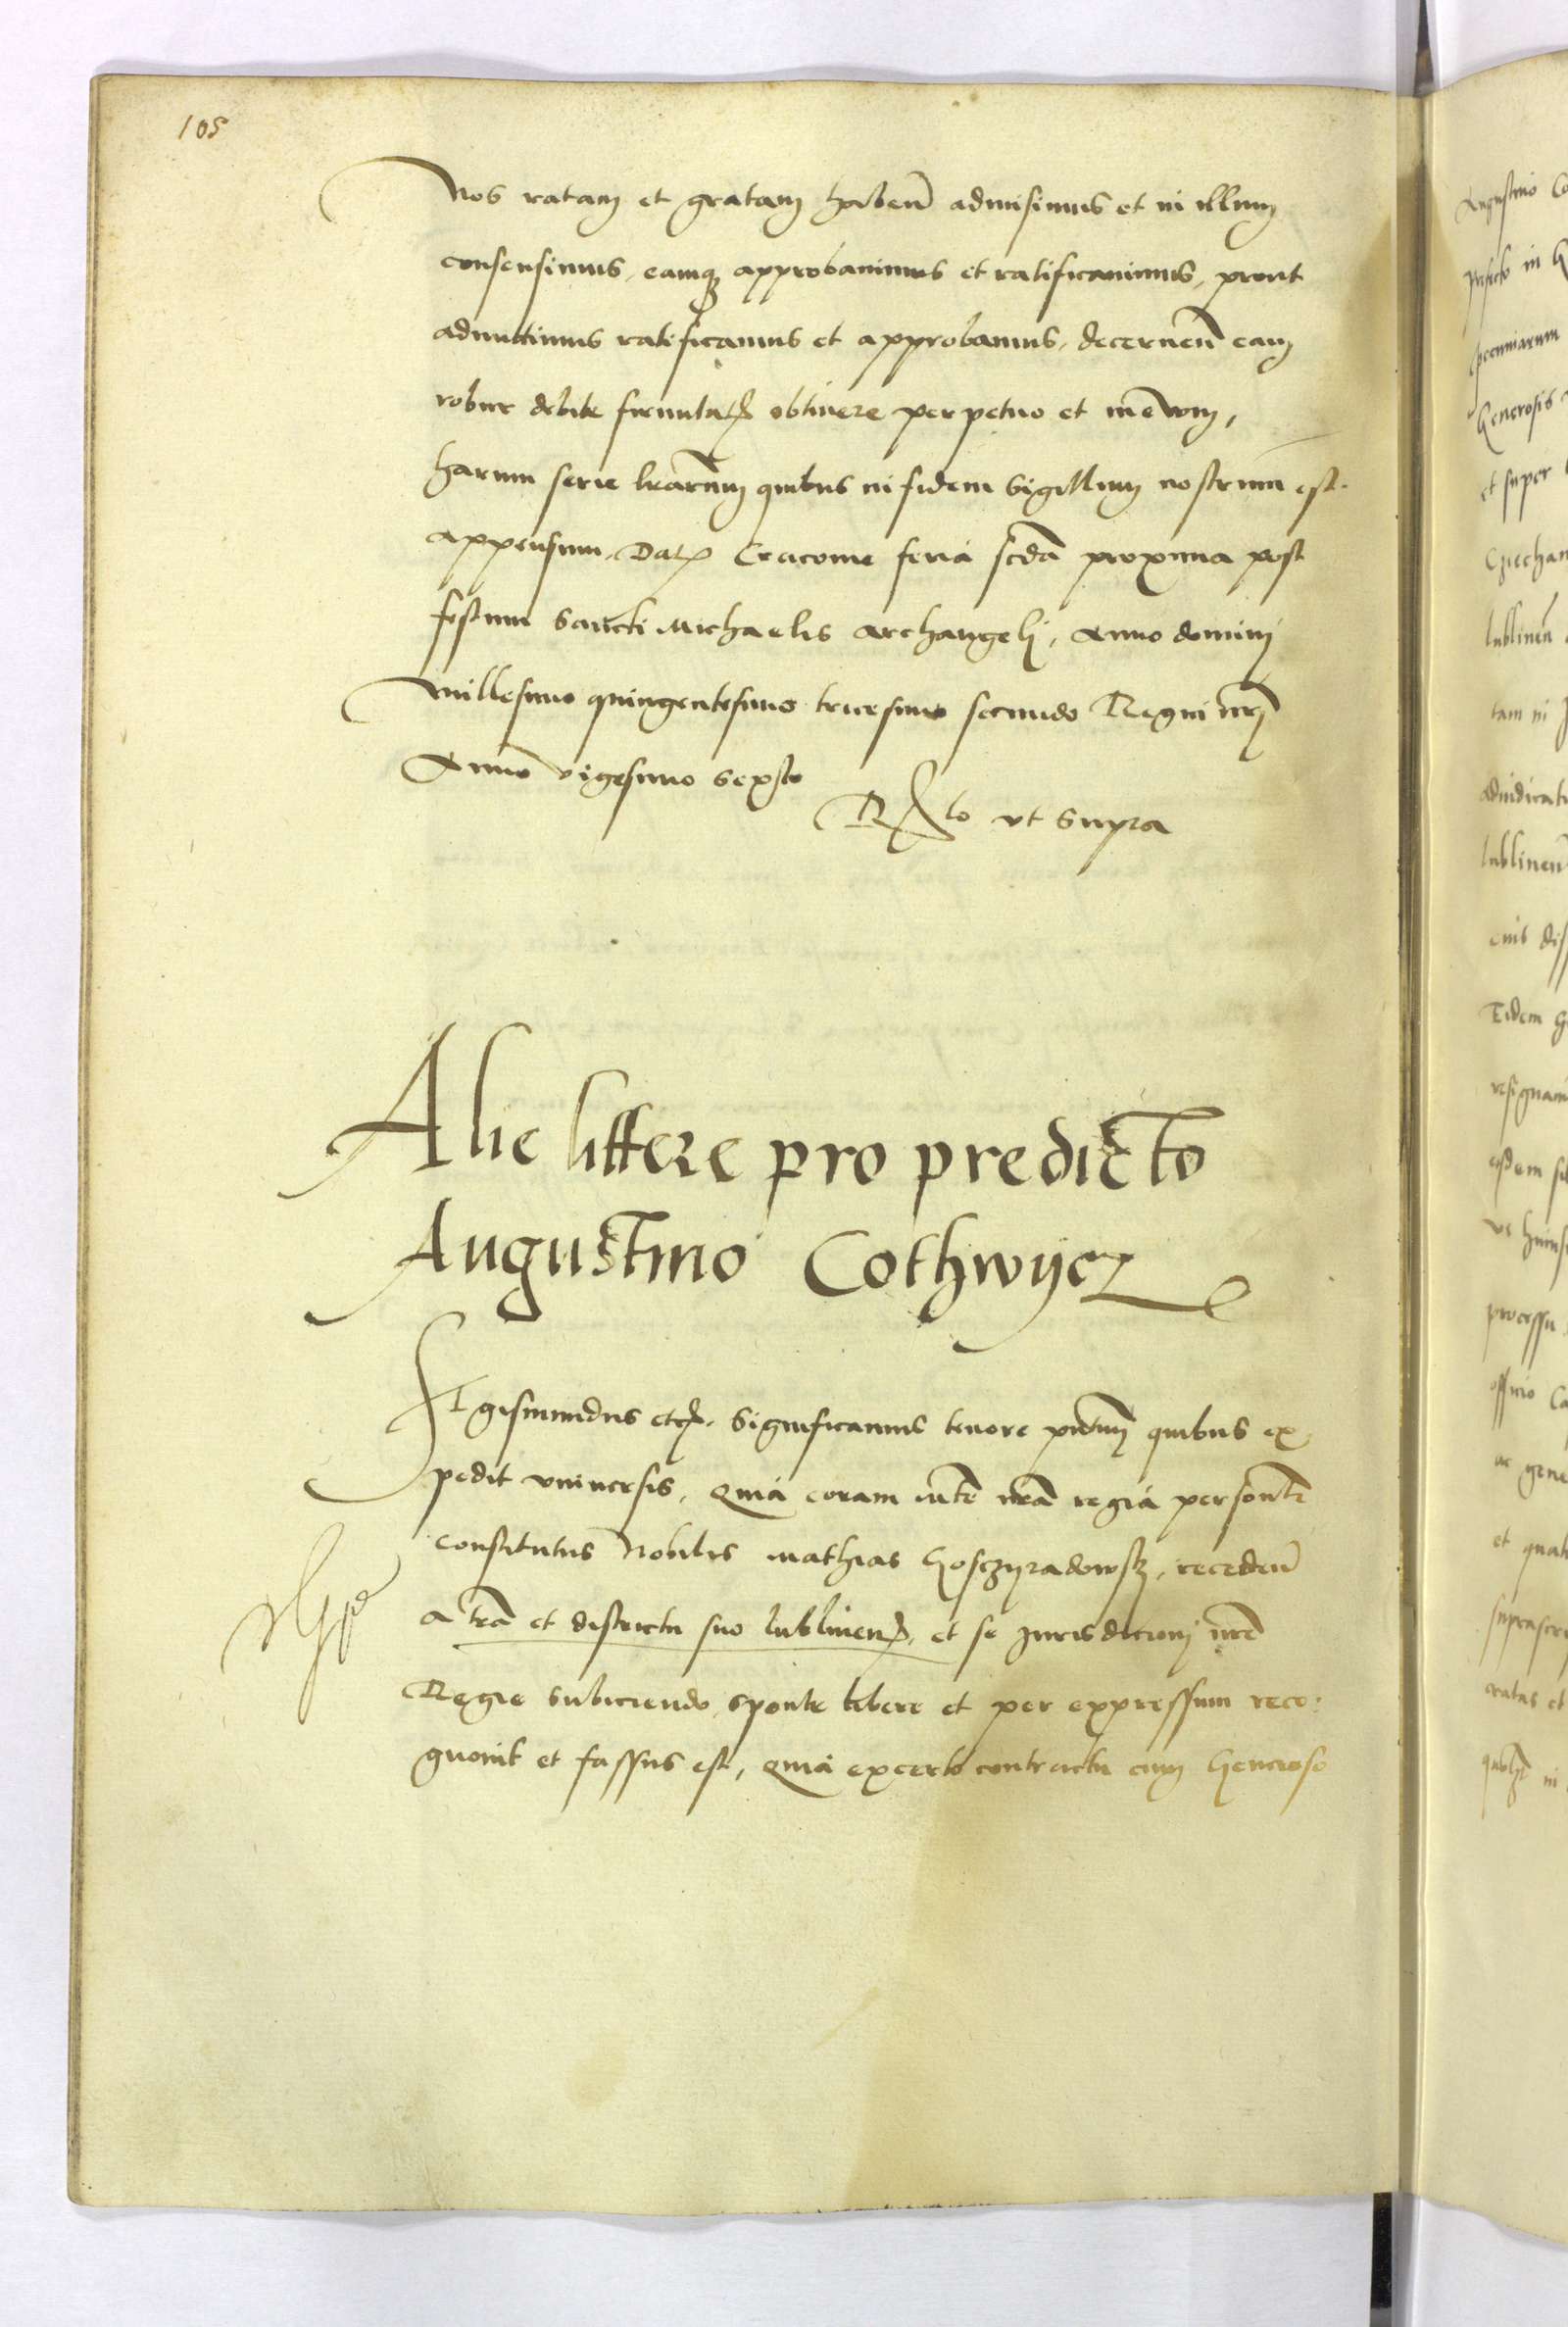 105
Nos ratam et gratam haben̄ admisimus et in illum
consensimus, eamq approbavimus et ratificavimus, prout
admittimus ratificamus et approbamus, decernen̄ eam
robur debite firmitat obtinere perpetuo et in evum,
harum serie lrarum quibus in fidem Sigillum nostrum est
appensum. Dat Cracovie feria scda proxima post
festum Sancti Michaelis archangelj, Anno dominj
millesimo quingentesimo tricesimo secundo Regni nrj
Anno vigesimo sexto
Rto vt supra
Alie littere pro predicto
Augustino Cothwycz
SIgismundus etc. Significamus tenore pntium quibus ex
pedit vniversis, Quia coram mte nra regia personlr
constitutus Nobilis Mathias Gosczyradowskj, receden̄
a tra et districtu suo lublinen, et se Jurisdicionj nre
Regie subiciendo, sponte libere et per expressum reco:
gnovit et fassus est, Quia ex certo contractu cum Generoso
Augustino
in
pecuniarum
Generosis
et super
Czechan
lublinen̄
tam in
adiudicat
lublinen̄
eius
Eidem
resignavi
eisdem
vt
processu
officio
ac gene
et
suprascri
ratas et
in